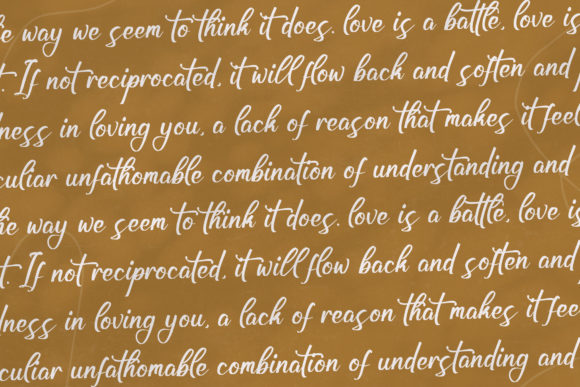 he way we seem to think it does. love is a battle, love is
t. If not reciprocated, it will flow back and soften and
ness in loving you, a lack of reason that makes it feel
culiar unfathomable combination of understanding and
he way we seem to think it does. love is a battle, love is
t. If not reciprocated, it will flow back and soften and
lness in loving you, a lack of reason that makes it fee
culiar unfathomable combination of understanding and